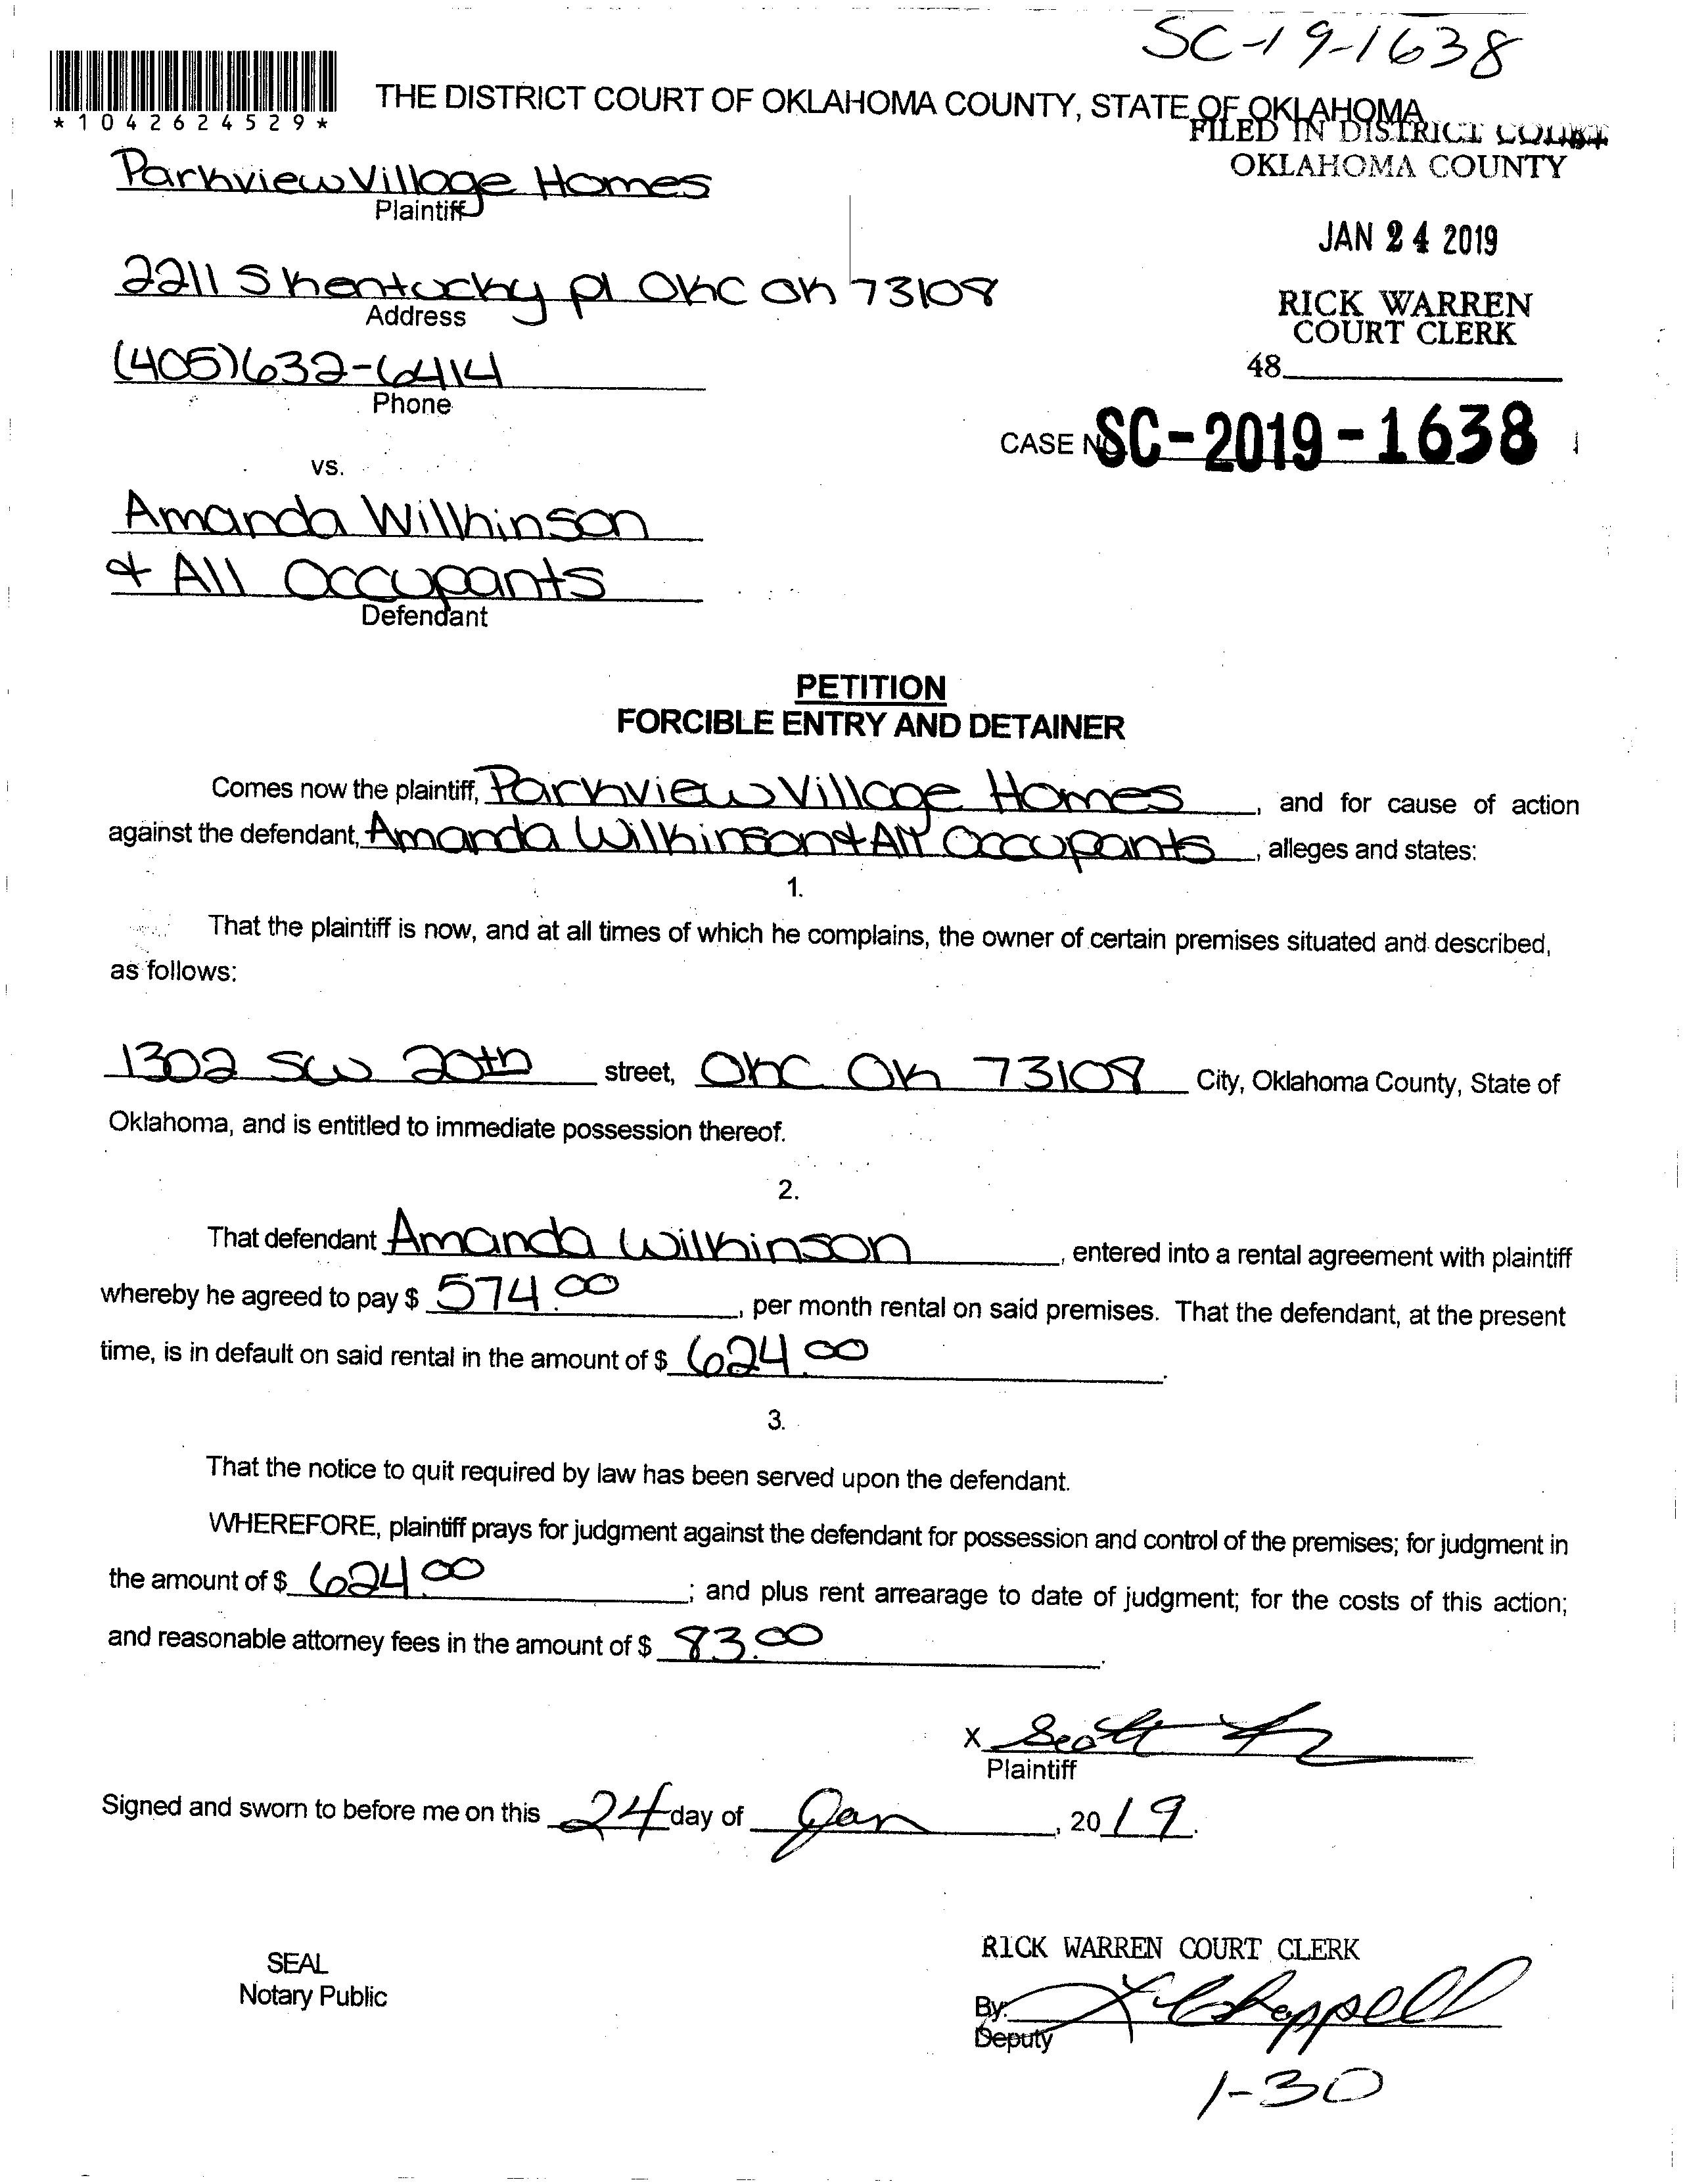 SC-19-1638
*1042624529*
THE DISTRICT COURT OF OKLAHOMA COUNTY, STATE OF OKLAHOMA
FILED IN DISTRICT COURT
OKLAHOMA COUNTY
Parkview Village Homes
Plaintiff
JAN 24 2019
2211 S Kentucky pl OKC OK 73108
Address
RICK WARREN
COURT CLERK
(405)632-6414
Phone
48
CASE NO SC-2019-1638
vs.
Amanda Wilkinson
& All Occupants
Defendant
PETITION
FORCIBLE ENTRY AND DETAINER
Comes now the plaintiff, Parkview Village Homes, and for cause of action
against the defendant, Amanda Wilkinson & All Occupants, alleges and states:
1.
That the plaintiff is now, and at all times of which he complains, the owner of certain premises situated and described,
as follows:
1302 SW 20th street, OKC OK 73108 City, Oklahoma County, State of
Oklahoma, and is entitled to immediate possession thereof.
2.
That defendant Amanda Wilkinson, entered into a rental agreement with plaintiff
whereby he agreed to pay $ 574.00, per month rental on said premises. That the defendant, at the present
time, is in default on said rental in the amount of $ 624.00.
3.
That the notice to quit required by law has been served upon the defendant.
WHEREFORE, plaintiff prays for judgment against the defendant for possession and control of the premises; for judgment in
the amount of $ 624.00; and plus rent arrearage to date of judgment; for the costs of this action;
and reasonable attorney fees in the amount of $ 83.00.
X Scott
Plaintiff
Signed and sworn to before me on this 24 day of Jan, 2019.
RICK WARREN COURT CLERK
SEAL
Notary Public
By: Chappell
Deputy
1-30